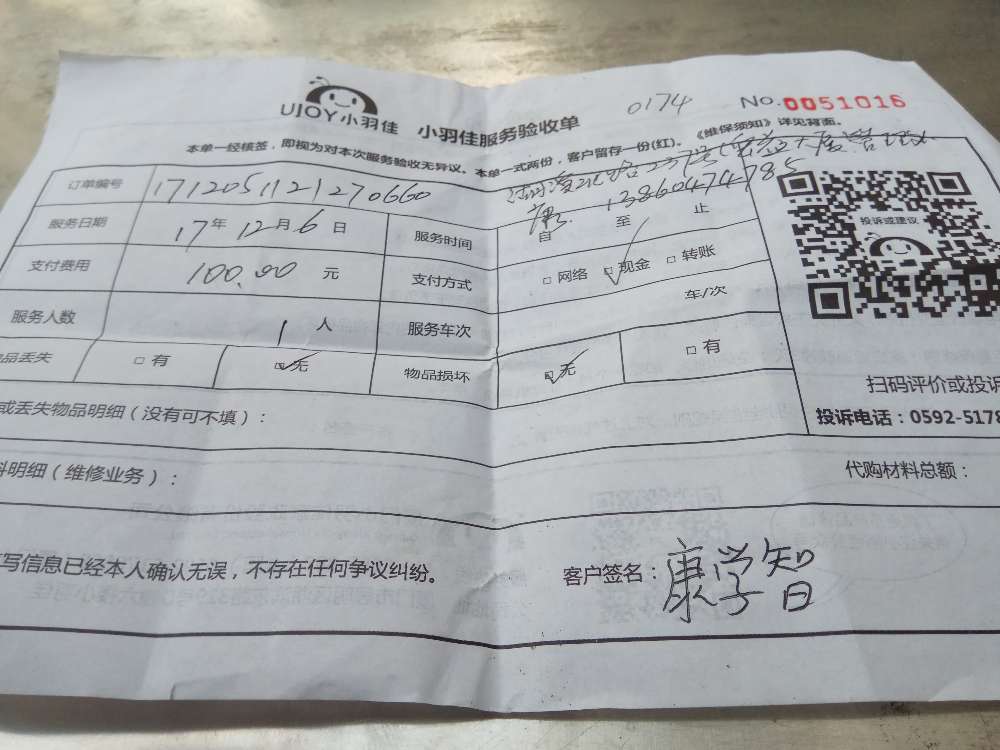 UJOY小羽佳 小羽佳服务验收单 0174 No.0051016
本单一经核签，即视为对本次服务验收无异议。本单一式两份，客户留存一份(红)。《维保须知》详见背面。
订单编号 1712051121270660 13860474785
服务日期 17年12月6日 服务时间 自 至 止
支付费用 100.00元 支付方式 □网络 □现金 □转账
服务人数 1人 服务车次 车/次
品丢失 □有 □无 物品损坏 □无 □有
投诉或建议
扫码评价或投诉
投诉电话：0592-5178
或丢失物品明细（没有可不填）：
料明细（维修业务）： 代购材料总额：
写信息已经本人确认无误，不存在任何争议纠纷。 客户签名：康学智